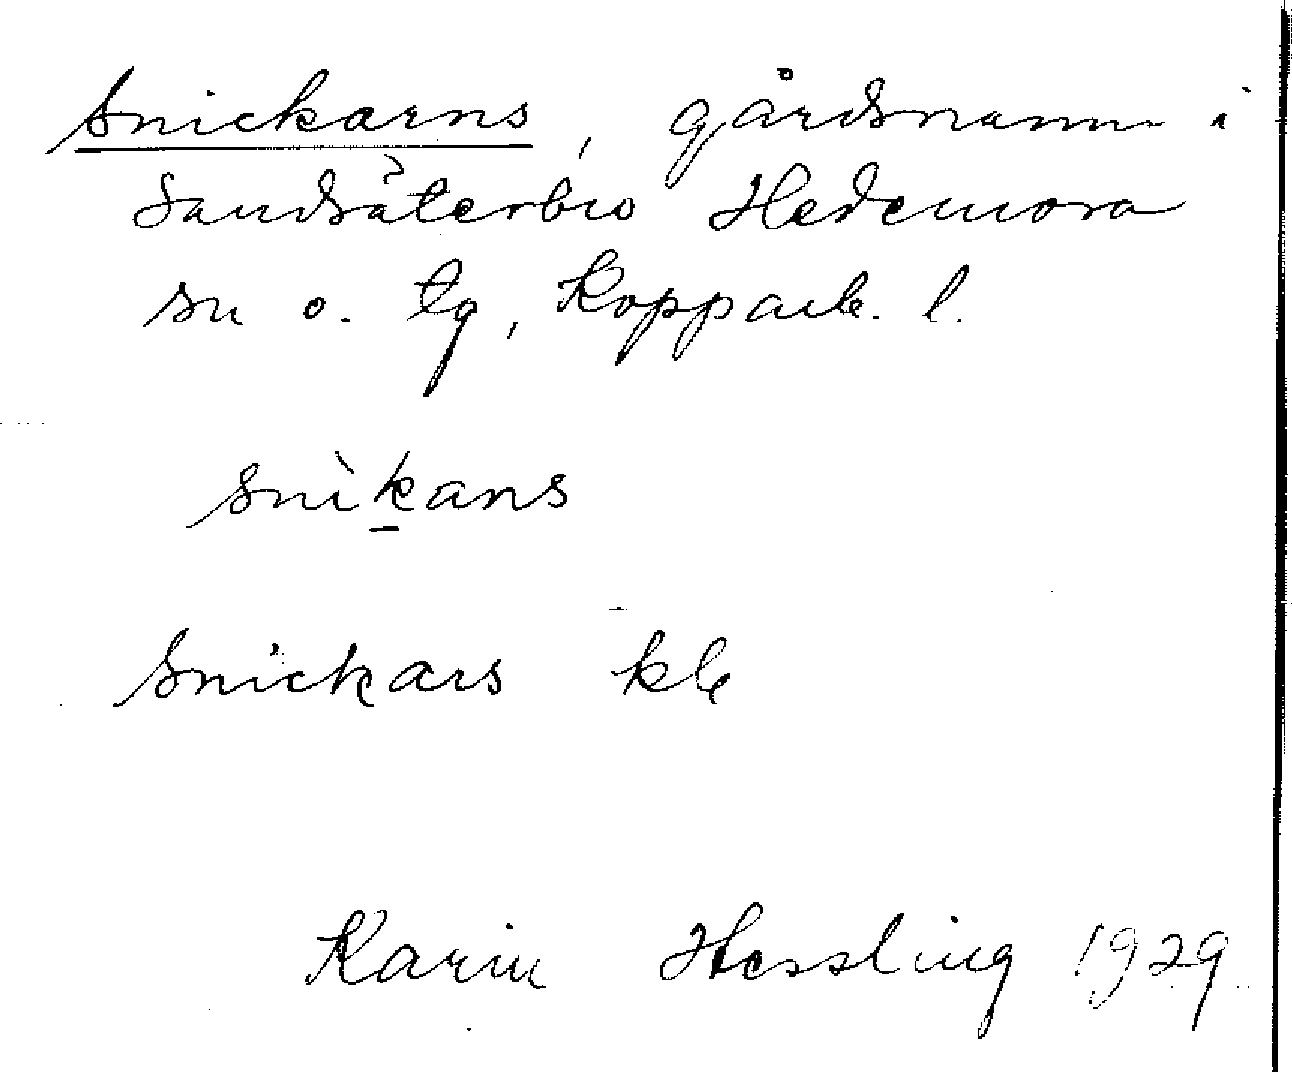 Snickarns, gårdsnamn i
Sandsäterbro Hedemora
sn o. tg, Kopparb. l.
snìkans
Snickars klg
Karin Hessling 1929